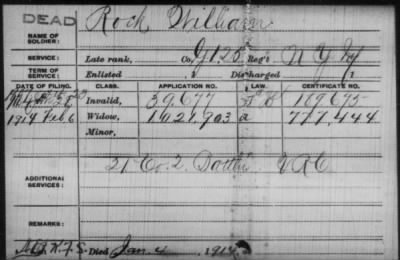 DEAD
NAME OF SOLDIER: Rock William
SERVICE: Late rank, Co. G 125 Reg't N Y Inf
TERM OF SERVICE: Enlisted , 1 Discharged , 1
DATE OF FILING. CLASS. APPLICATION NO. LAW. CERTIFICATE NO.
Invalid, 39,677 189,695
1914 Feb 6 Widow, 1021,903 a 777,444
Minor,
ADDITIONAL SERVICES: 21 Co. 2. Batt. V R C
REMARKS:
Died Jan. 4 1914